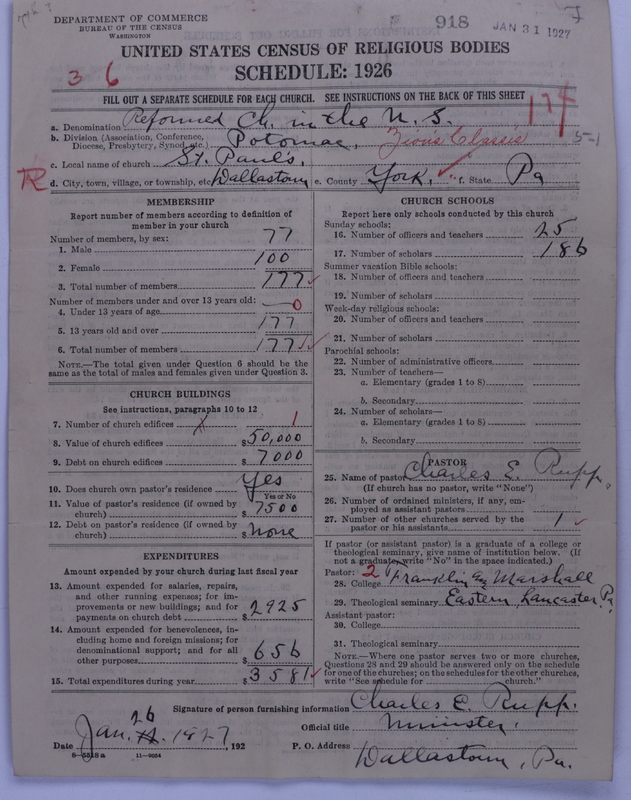 918 JAN 31 1927
DEPARTMENT OF COMMERCE
BUREAU OF THE CENSUS
WASHINGTON
UNITED STATES CENSUS OF RELIGIOUS BODIES
3 6 SCHEDULE: 1926
FILL OUT A SEPARATE SCHEDULE FOR EACH CHURCH. SEE INSTRUCTIONS ON THE BACK OF THIS SHEET
a. Denomination Reformed Ch. in the U. S.
b. Division (Association, Conference, Diocese, Presbytery, Synod, etc.) Potomac, Zion's Classis 5-1
c. Local name of church St. Paul's.
d. City, town, village, or township, etc. Dallastown e. County York. f. State Pa
MEMBERSHIP
Report number of members according to definition of
member in your church
Number of members, by sex:
1. Male 77
2. Female 100
3. Total number of members 177
Number of members under and over 13 years old:
4. Under 13 years of age 0
5. 13 years old and over 177
6. Total number of members 177
NOTE.—The total given under Question 6 should be
same as the total of males and females given under Question 3.
CHURCH BUILDINGS
See instructions, paragraphs 10 to 12
7. Number of church edifices 1
8. Value of church edifices $50,000
9. Debt on church edifices $7000
10. Does church own pastor's residence Yes
Yes or No
11. Value of pastor's residence (if owned by
church) $7500
12. Debt on pastor's residence (if owned by
church) $none
EXPENDITURES
Amount expended by your church during last fiscal year
13. Amount expended for salaries, repairs,
and other running expenses; for im-
provements or new buildings; and for
payments on church debt $2925
14. Amount expended for benevolences, in-
cluding home and foreign missions; for
denominational support; and for all
other purposes $656
15. Total expenditures during year $3581
CHURCH SCHOOLS
Report here only schools conducted by this church
Sunday schools:
16. Number of officers and teachers 25
17. Number of scholars 186
Summer vacation Bible schools:
18. Number of officers and teachers
19. Number of scholars
Week-day religious schools:
20. Number of officers and teachers
21. Number of scholars
Parochial schools:
22. Number of administrative officers
23. Number of teachers—
a. Elementary (grades 1 to 8)
b. Secondary
24. Number of scholars—
a. Elementary (grades 1 to 8)
b. Secondary
PASTOR
25. Name of pastor Charles E. Rupp.
(If church has no pastor, write "None")
26. Number of ordained ministers, if any, em-
ployed as assistant pastors
27. Number of other churches served by the
pastor or his assistants 1
If pastor (or assistant pastor) is a graduate of a college or
theological seminary, give name of institution below. (If
not a graduate, write "No" in the space indicated.)
Pastor: 2
28. College Franklin & Marshall
29. Theological seminary Eastern, Lancaster, Pa.
Assistant pastor:
30. College
31. Theological seminary
NOTE.—Where one pastor serves two or more churches,
Questions 28 and 29 should be answered only on the schedule
for one of the churches; on the schedules for the other churches,
write "See schedule for church."
Signature of person furnishing information Charles E. Rupp.
Official title Minister.
Date Jan. 26 1927, 192 P. O. Address Dallastown, Pa.
8—5518 a 11—9064